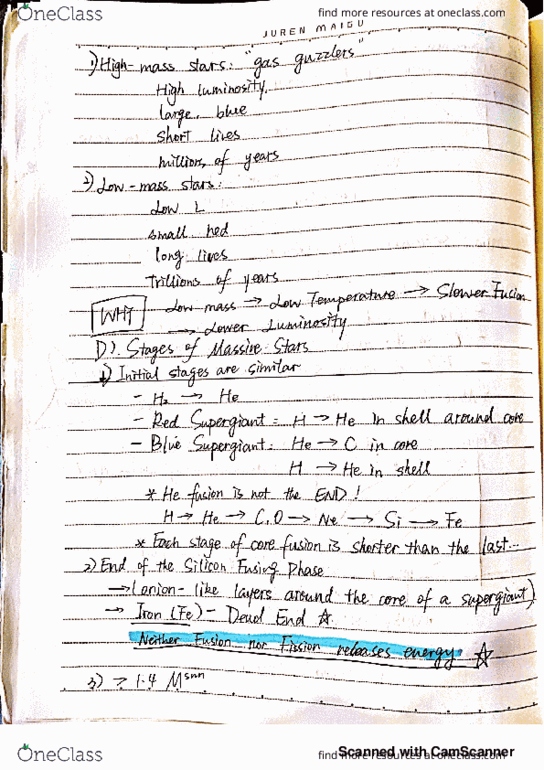 OneClass
find more resources at oneclass.com
JUREN MAIGU
1) High-mass stars: "gas guzzlers"
High luminosity,
large, blue
short lives
millions of years
2) Low-mass stars:
Low L
small red
long lives
Trillions of years
WHY Low mass → Low Temperature → Slower Fusion
→ Lower Luminosity
D). Stages of Massive Stars
1) Initial stages are similar
- H₂ → He
- Red Supergiant: H → He in shell around core
- Blue Supergiant: He → C in core
H → He in shell
* He fusion is not the END!
H → He → C,O → Ne → Si → Fe
* Each stage of core fusion is shorter than the last...
2) End of the Silicon Fusing Phase
→ (onion-like layers around the core of a supergiant)
→ Iron (Fe) - Dead End ☆
Neither Fusion nor Fission releases energy. ☆
3) ≥ 1.4 Msun
OneClass
find more resources at oneclass.com
Scanned with CamScanner